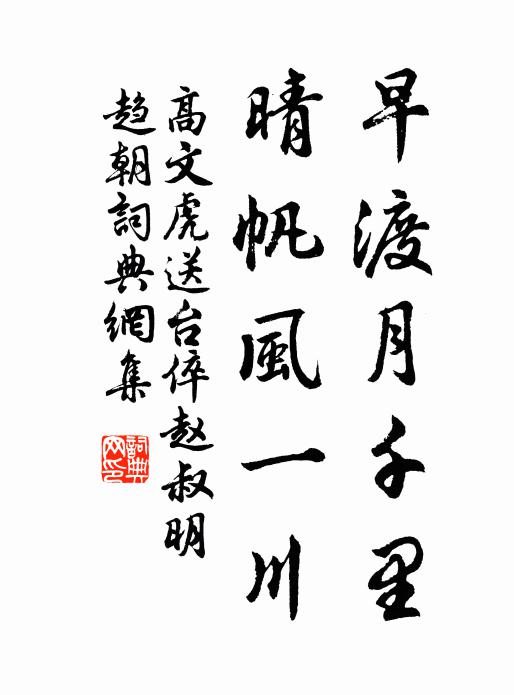 早渡月千里
晴帆風一川
高文虎送台倅赵叔明
趋朝詞典網集
詞典网印